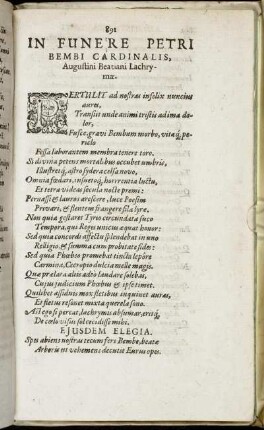 891
IN FUNERE PETRI
BEMBI CARDINALIS,
Augustini Beatiani Lachry-
mæ.
PERTVLIT ad nostras infelix nuncius
aures,
Transijt unde animi tristis ad ima do-
lor,
Fusce, gravi Bembum morbo, vitæq́; pe-
riclo
Fessa laborantem membra tenere toro.
Si divina petens mortalibus occubet umbris,
Illustretq́; astro sydera celsa novo,
Omnia fœdari, insuetoq́; horrescere luctu,
Et terra videas secula nocte premi:
Permessi & lauros arescere, luce Poesim
Privari, & flentem frangere fila lyræ.
Non quia gestaret Tyrio circundata fuco
Tempora, qui Reges unicus æquat honor:
Sed quia concordi affectu splendebat in uno
Religio, & summa cum probitate fides:
Sed quia Phœbeo promebat tincta lepore
Carmina, Cecropio dulcia melle magis.
Quæ prælata alijs adeo laudare solebas,
Cujus judicium Phœbus & ipse timet.
Quilibet assiduis mox fletibus impleat auras,
Et fletus resonet mixta querela sono.
Ast ego si percat, lachrymis absumar, eritq́;
De cœlo visus sol cecidisse mihi.
EJUSDEM ELEGIA.
Spes abiens nostras tecum fers Bembe, beatæ
Arboris ut vehemens decutit Eurus opes.